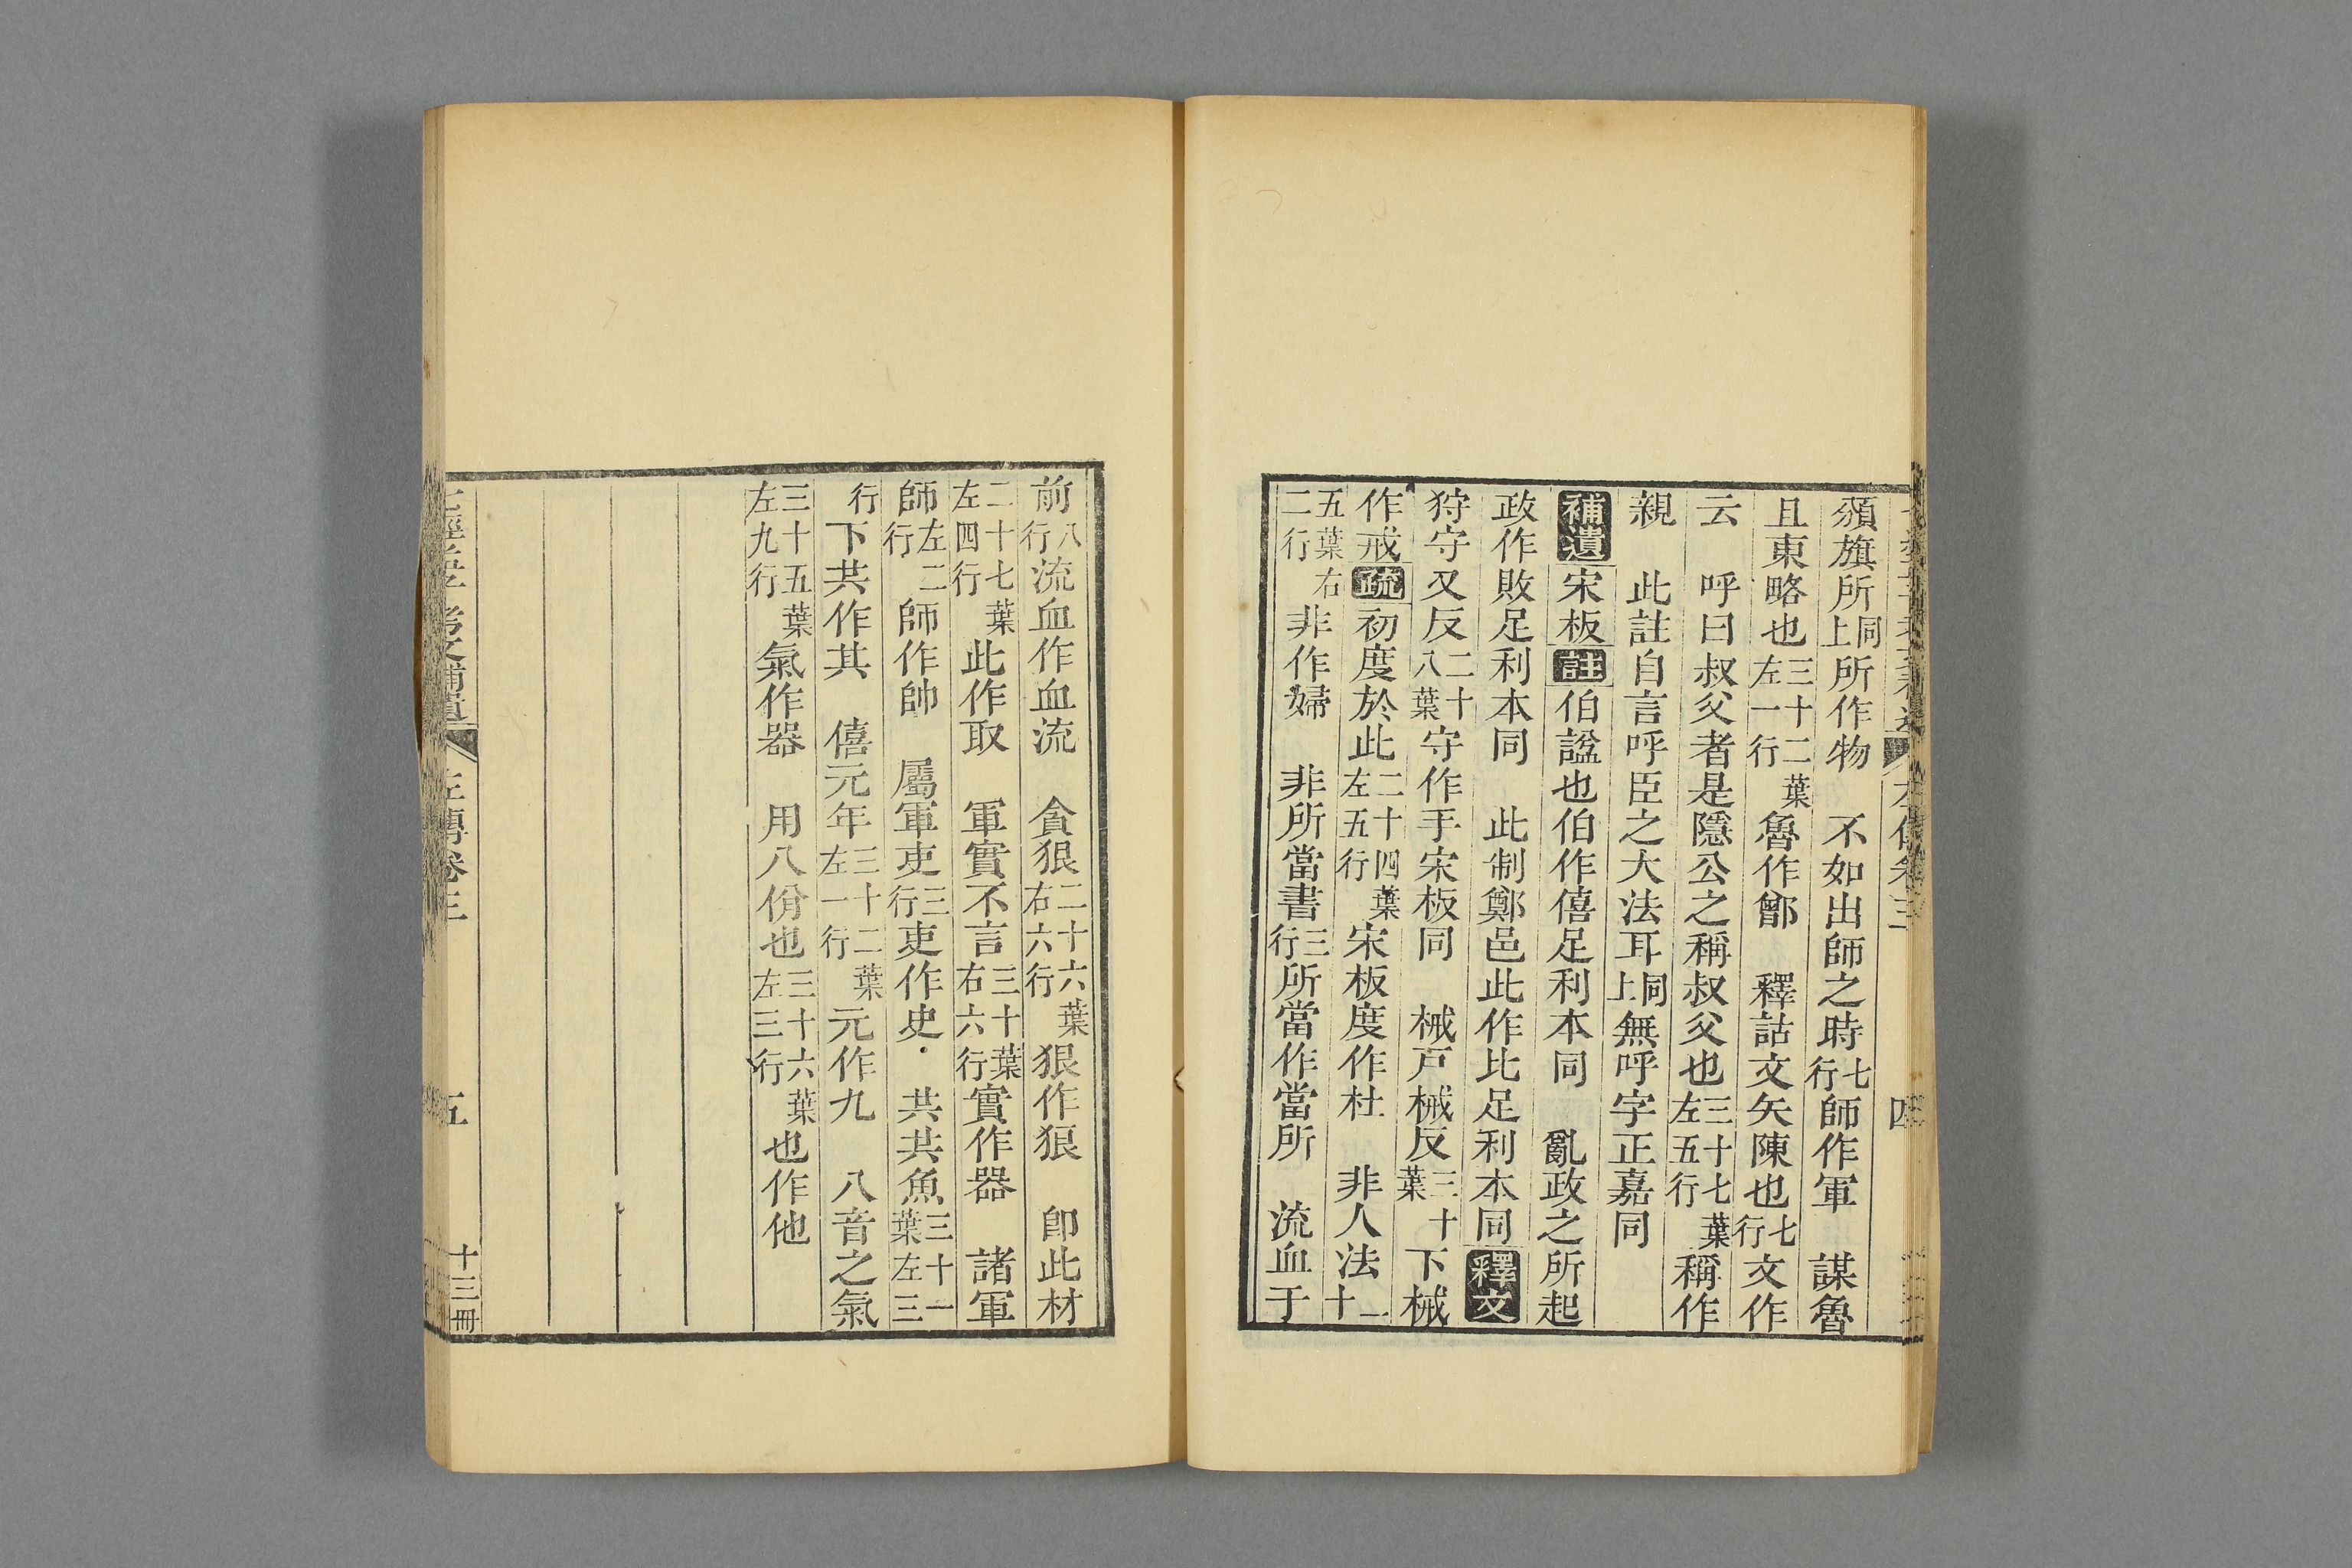 纇旗所同上所作物　不如出師之時七行師作軍　謀魯
且東略也三十二葉左一行魯作鄫　釋詁文矢陳也七行文作
云　呼曰叔父者是隱公之稱叔父也三十七葉左五行稱作
親　此註自言呼臣之大法耳同上無呼字正嘉同
補遺宋板註伯諡也伯作僖足利本同　亂政之所起
政作敗足利本同　此制鄭邑此作比足利本同釋文
狩守又反二十八葉守作手宋板同　械戸械反三十葉下械
作戒疏初度於此二十四葉左五行宋板度作杜　非人法一十
五葉右二行非作婦　非所當書三行所當作當所　流血于
前八行流血作血流　貪狠二十六葉右六行狠作狼　卽此材
二十七葉左四行此作取　軍實不言三十葉右六行實作器　諸軍
師左二行師作帥　屬軍吏三行吏作史・共共魚三十一葉左三
行下共作其　僖元年三十二葉左一行元作九　八音之氣
三十五葉左九行氣作器　用八佾也三十六葉左三行也作他
七經孟子考文補遺　左傳卷三　五　十三冊